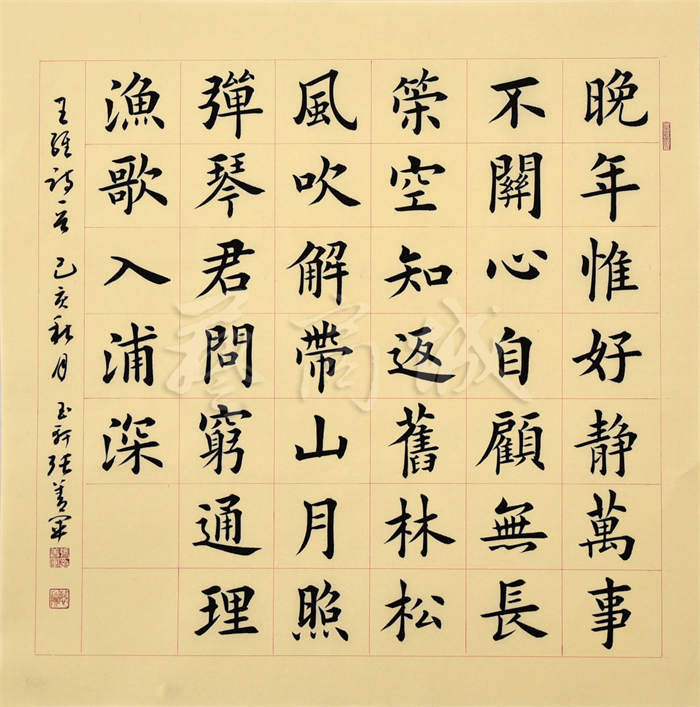 晚年惟好静萬事
不關心自顧無長
策空知返舊林松
風吹解帶山月照
彈琴君問窮通理
漁歌入浦深
王維詩一首 己亥秋月 玉新張善軍
藝商城